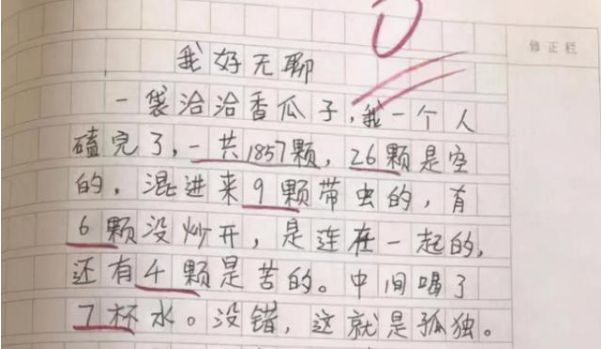 0
修正栏
我好无聊
一袋洽洽香瓜子，我一个人
磕完了，一共1857颗，26颗是空
的，混进来9颗带虫的，有
6颗没炒开，是连在一起的，
还有4颗是苦的。中间喝了
7杯水。没错，这就是孤独。